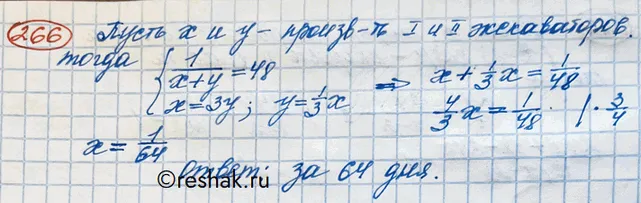 266 Пусть x и y - произв-ть I и II экскаваторов.
тогда { 1/(x+y) = 48
x = 3y; y = 1/3 x => x + 1/3 x = 1/48
4/3 x = 1/48 | · 3/4
x = 1/64
Ответ: за 64 дня.
©reshak.ru